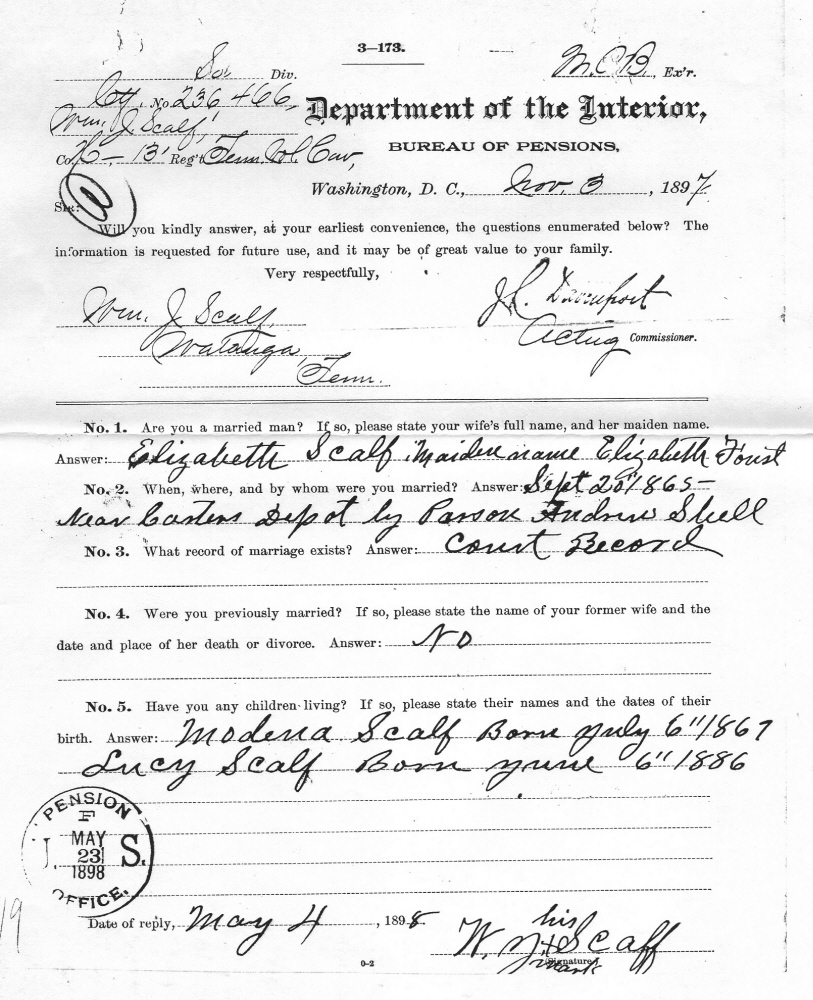 3—173.
So. Div.
M.C.B., Ex'r.
Ctf. No. 236 466,
Wm. J. Scalf,
Department of the Interior,
Co. 13' Reg't Tenn. Vol. Cav,
BUREAU OF PENSIONS,
Washington, D. C., Nov. 3, 1897.
Sir:
Will you kindly answer, at your earliest convenience, the questions enumerated below? The
information is requested for future use, and it may be of great value to your family.
Very respectfully,
Wm. J. Scalf,
Davenport
Watauga,
Acting Commissioner.
Tenn.
No. 1. Are you a married man? If so, please state your wife's full name, and her maiden name.
Answer: Elizabeth Scalf Maiden name Elizabeth Foust
No. 2. When, where, and by whom were you married? Answer: Sept 20" 1865-
Near Carters Depot by Parson Andrew Shell
No. 3. What record of marriage exists? Answer: Court Record
No. 4. Were you previously married? If so, please state the name of your former wife and the
date and place of her death or divorce. Answer: No
No. 5. Have you any children living? If so, please state their names and the dates of their
birth. Answer: Modena Scalf Born July 6" 1867
Lucy Scalf Born June 6" 1886
PENSION
F
MAY
23
1898
S.
OFFICE.
Date of reply, May 4, 1898.
his
W. J. + Scalf
mark
(Signature.)
0-2
19